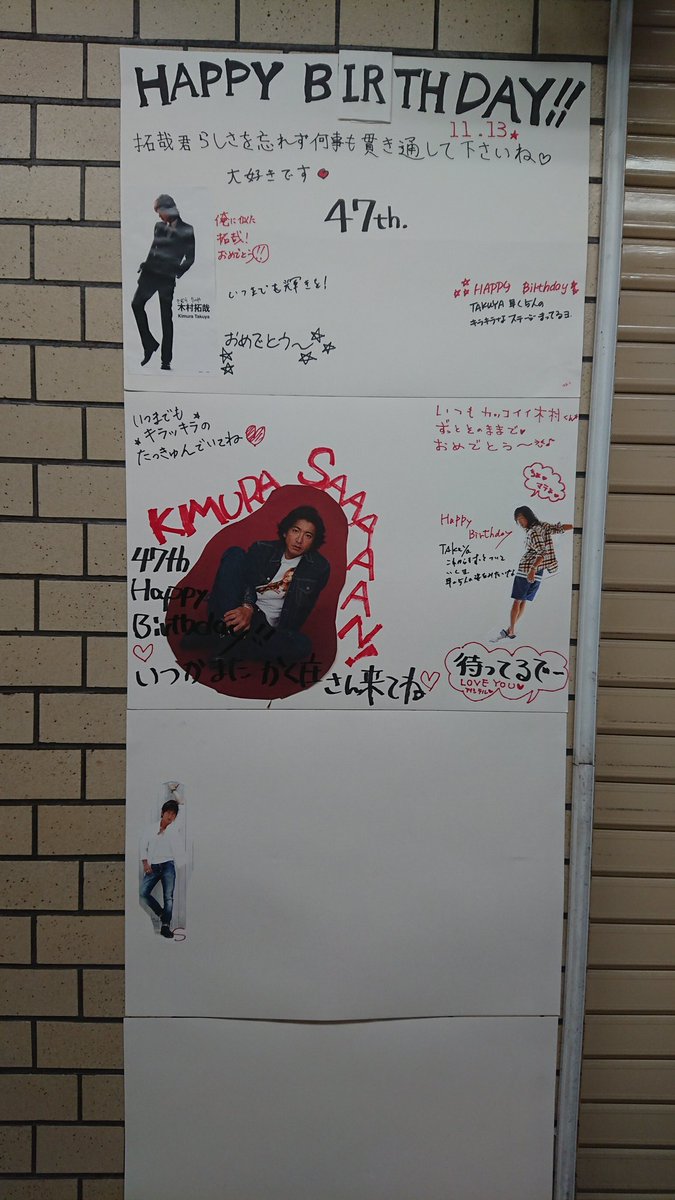 HAPPY BIRTHDAY!!
11.13
拓哉君らしさを忘れず何事も貫き通して下さいね♡
大好きです
47th.
俺に似た
拓哉!
おめでとう!!
木村拓哉
Kimura Takuya
いつまでも輝きを!
おめでとう〜
HAPPY Birthday
TAKUYA
いつまでも
キラッキラの
たっきゅんでいてね
いつもカッコイイ木村くん
ずっとそのままで
おめでとう〜
KIMURA SAAAAAN!
47th
Happy
Birthday!!
いつかまた かく庄さん来てね♡
Happy
Birthday
TAKUYA
待ってるでー
LOVE YOU